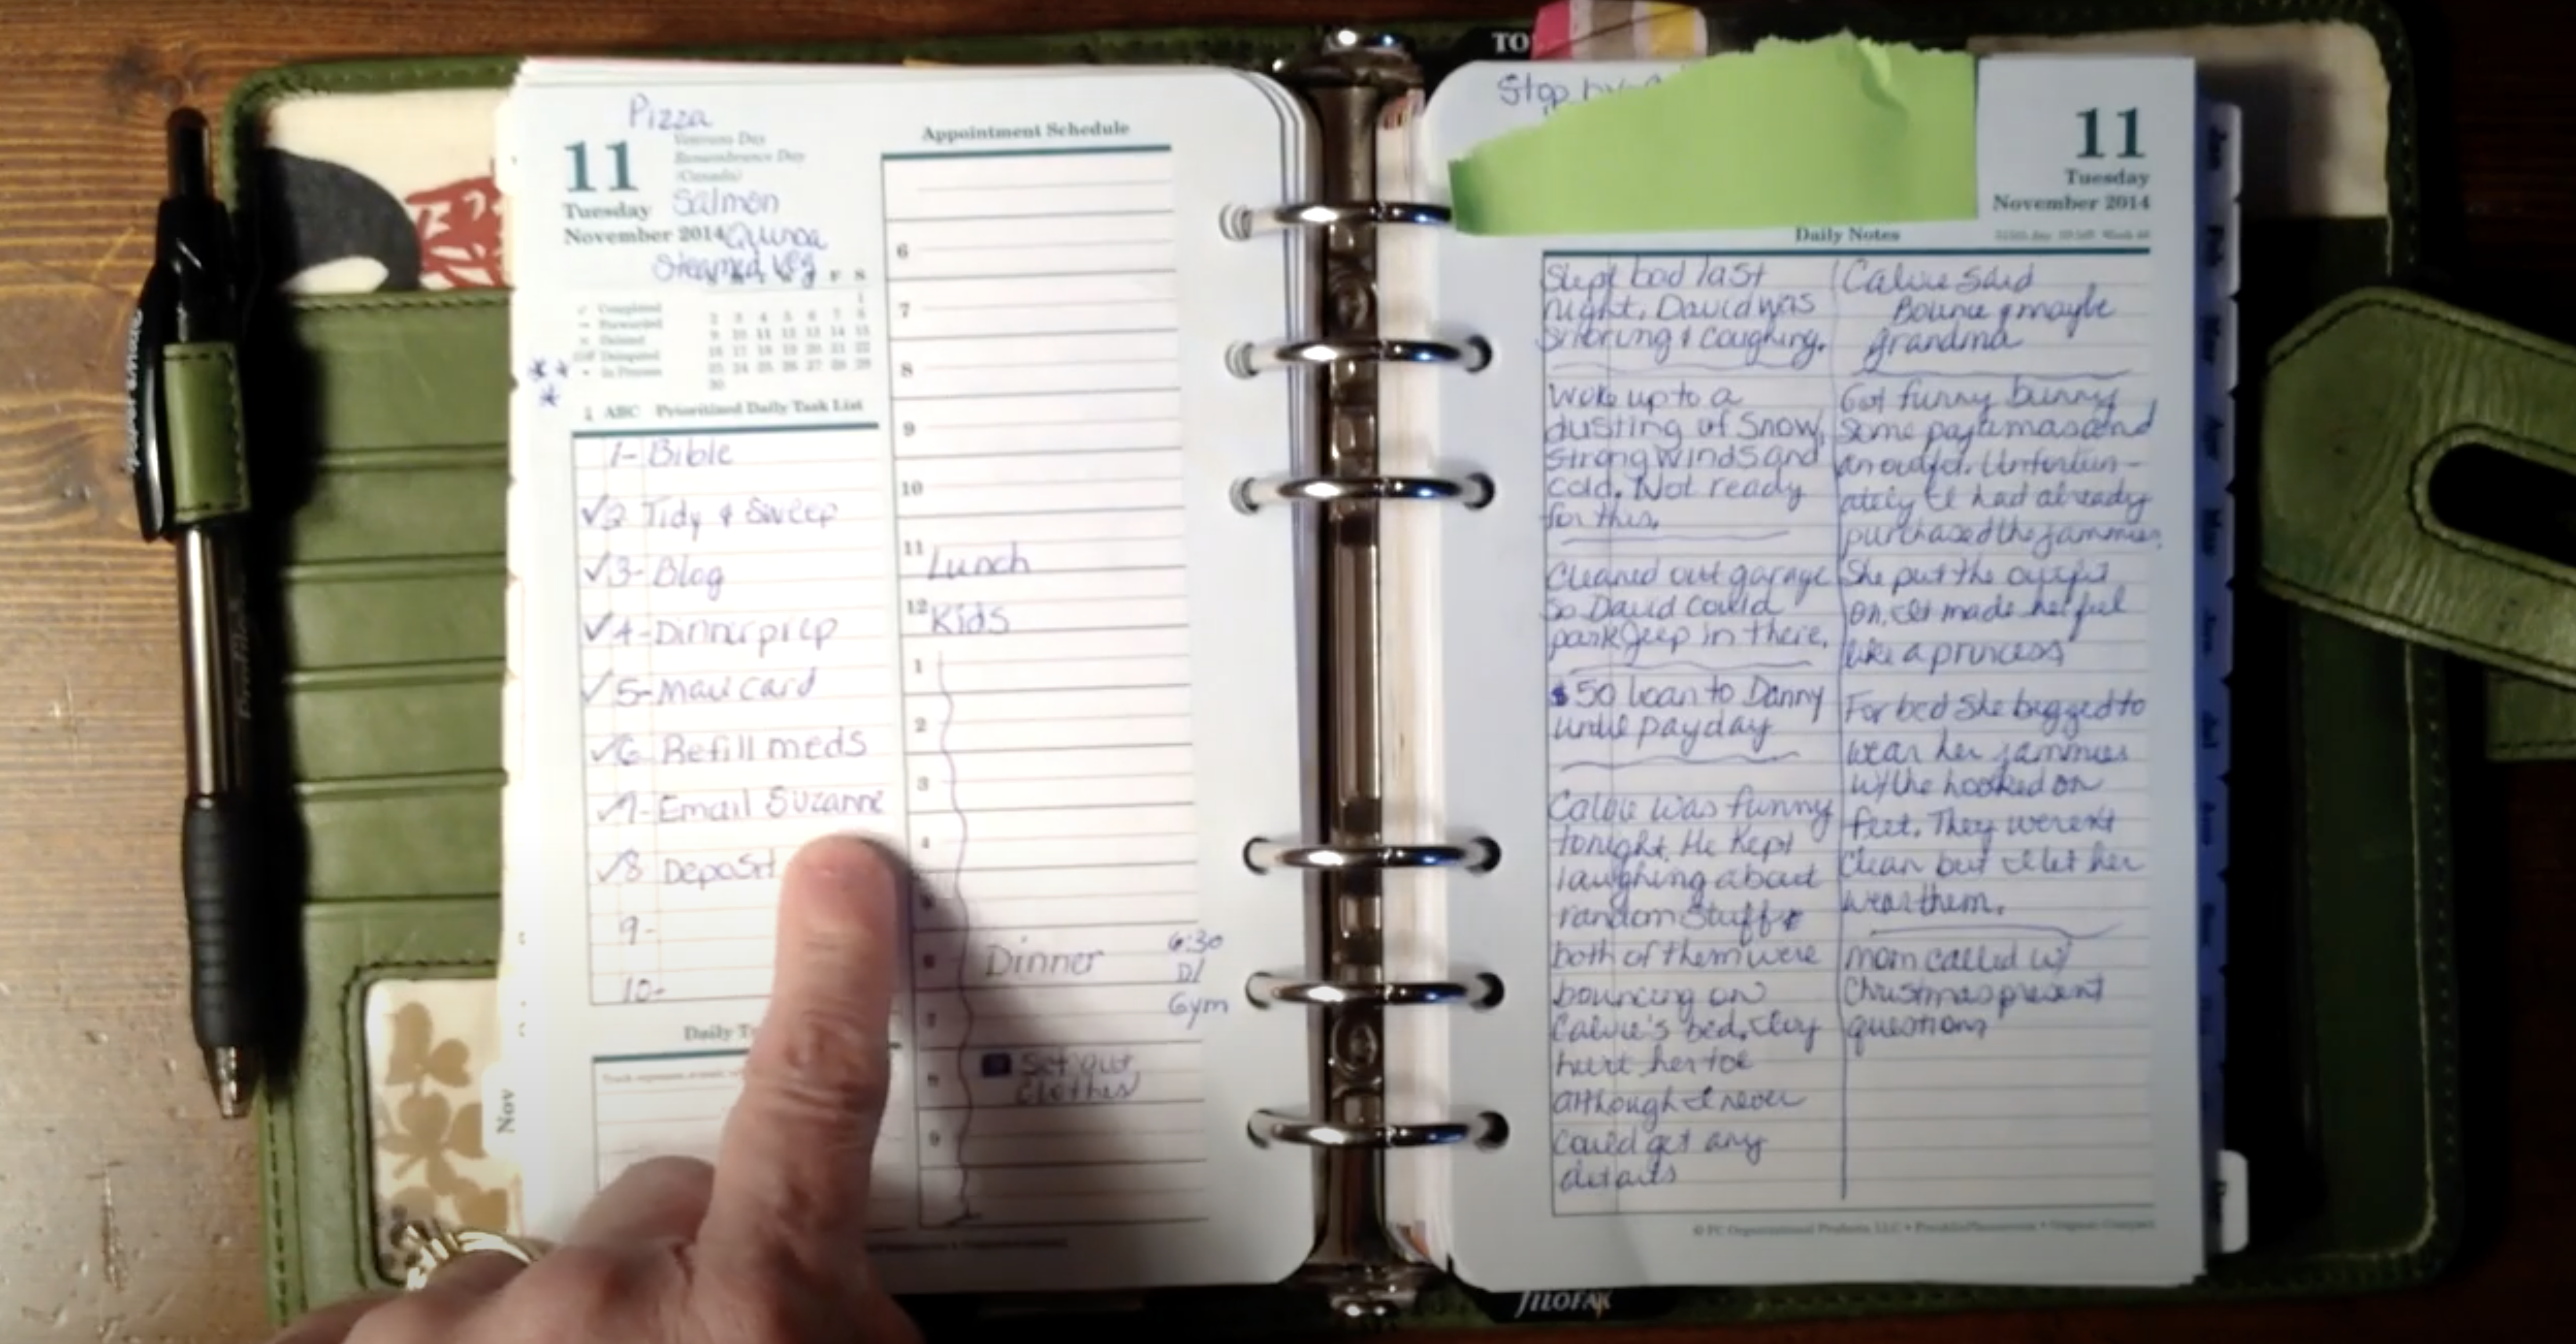 TO
Pizza
11
Veterans Day
Remembrance Day
(Canada)
Tuesday
Salmon
November 2014
Quinoa
Steamed Veg
F S
Completed
Forwarded
Deleted
Delegated
In Process
1
2 3 4 5 6 7 8
9 10 11 12 13 14 15
16 17 18 19 20 21 22
23 24 25 26 27 28 29
30
ABC Prioritized Daily Task List
1- Bible
✓2 Tidy & Sweep
✓3- Blog
✓4- Dinner prep
✓5- Mail card
✓6 Refill meds
✓7- Email Suzanne
✓8 Deposit
9-
10-
Daily
Nov
Appointment Schedule
6
7
8
9
10
11 Lunch
12 Kids
1
2
3
4
5
6 Dinner 6:30
D/
Gym
7
8 Set out
clothes
9
Stop by
11
Tuesday
November 2014
Daily Notes
Slept bad last
night. David was
snoring & coughing.
Woke up to a
dusting of snow,
strong winds and
cold. Not ready
for this.
Cleaned out garage
so David could
park Jeep in there.
$50 loan to Danny
until payday
Calvie was funny
tonight. He kept
laughing about
random stuff &
both of them were
bouncing on
Calvie's bed.
hurt her toe
although I never
could get any
details
Calvie said
Bounce & maybe
grandma
Got funny bunny
some pajamas and
an outfit. Unfortun-
ately I had already
purchased the jammies.
She put the outfit
on. It made her feel
like a princess
For bed she begged to
wear her jammies
w/ the hooked on
feet. They weren't
clean but I let her
wear them.
Mom called w/
Christmas present
questions
FILOFAX